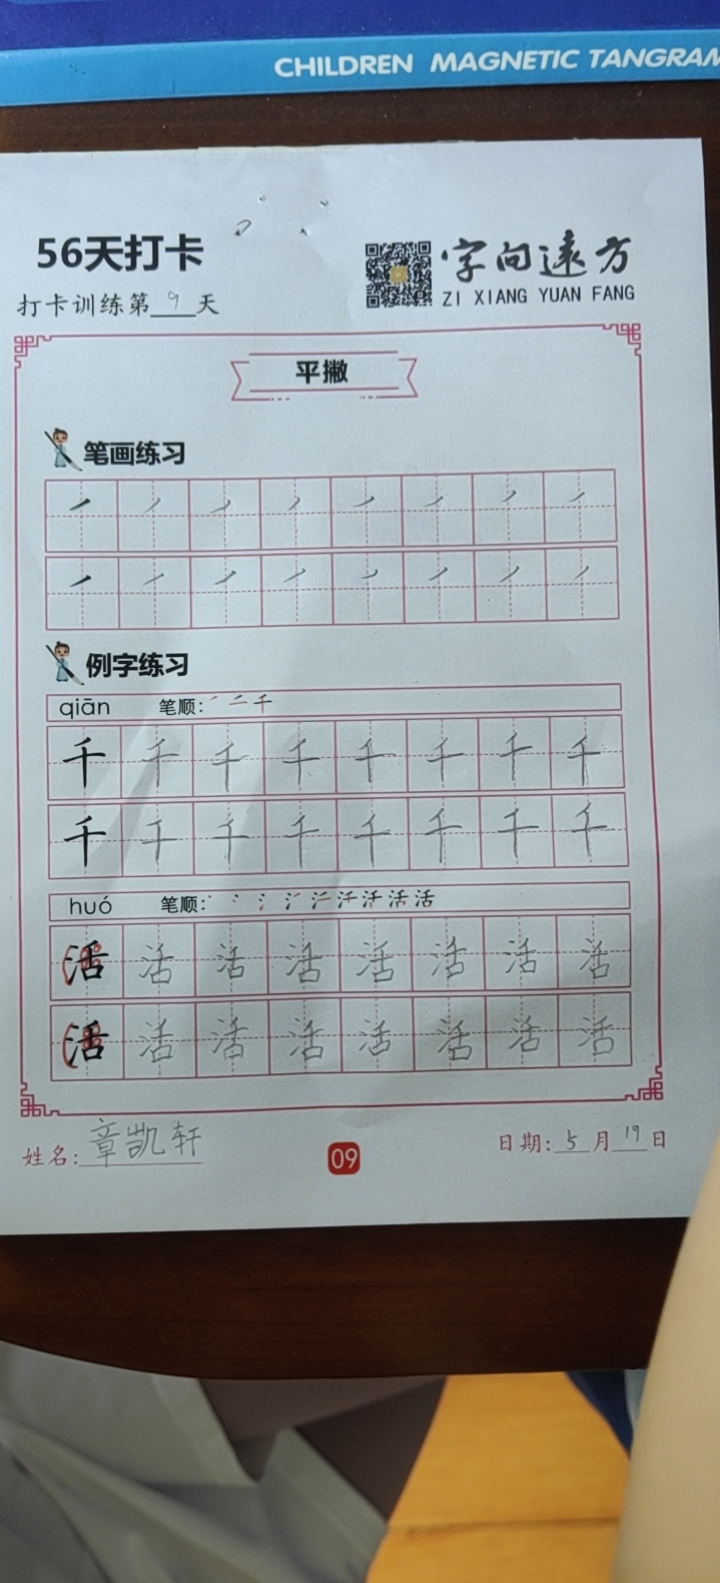 CHILDREN MAGNETIC TANGRAM
56天打卡
字向远方
ZI XIANG YUAN FANG
打卡训练第9天
平撇
笔画练习
例字练习
qiān 笔顺: ㇒ 二 千
千 千 千 千 千 千 千 千
千 千 千 千 千 千 千 千
huó 笔顺: 活
活 活 活 活 活 活 活 活
活 活 活 活 活 活 活 活
姓名: 章凯轩
09
日期: 5月19日